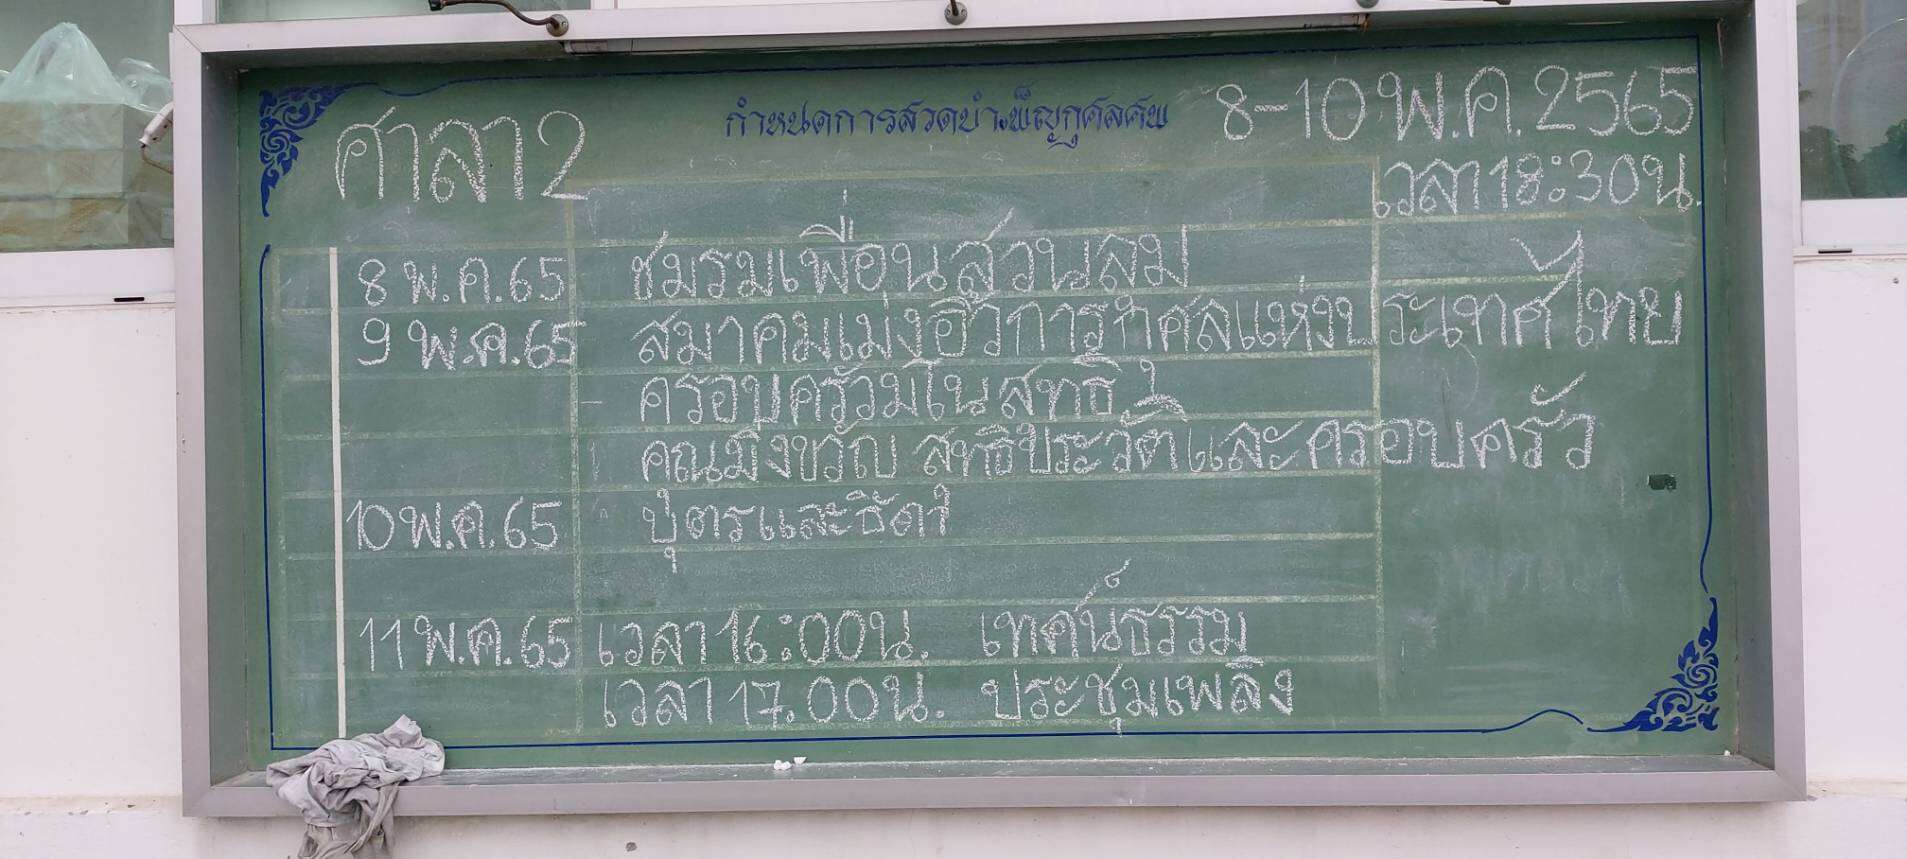 ศาลา 2
กำหนดการสวดบำเพ็ญกุศลศพ
8-10 พ.ค. 2565
เวลา 18:30 น.
8 พ.ค. 65 ชมรมเพื่อนสวนลม
9 พ.ค. 65 สมาคมเม่งฮั้วการกุศลแห่งประเทศไทย
ครอบครัวมโนสุทธิ
คุณมิ่งขวัญ สุทธิประวัติและครอบครัว
10 พ.ค. 65 บุตรและธิดา
11 พ.ค. 65 เวลา 16:00 น. เทศน์ธรรม
เวลา 17.00 น. ประชุมเพลิง